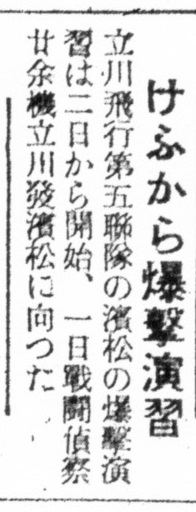 けふから爆擊演習
立川飛行第五聯隊の濱松の爆擊演
習は二日から開始、一日戰鬪偵察
廿余機立川發濱松に向つた